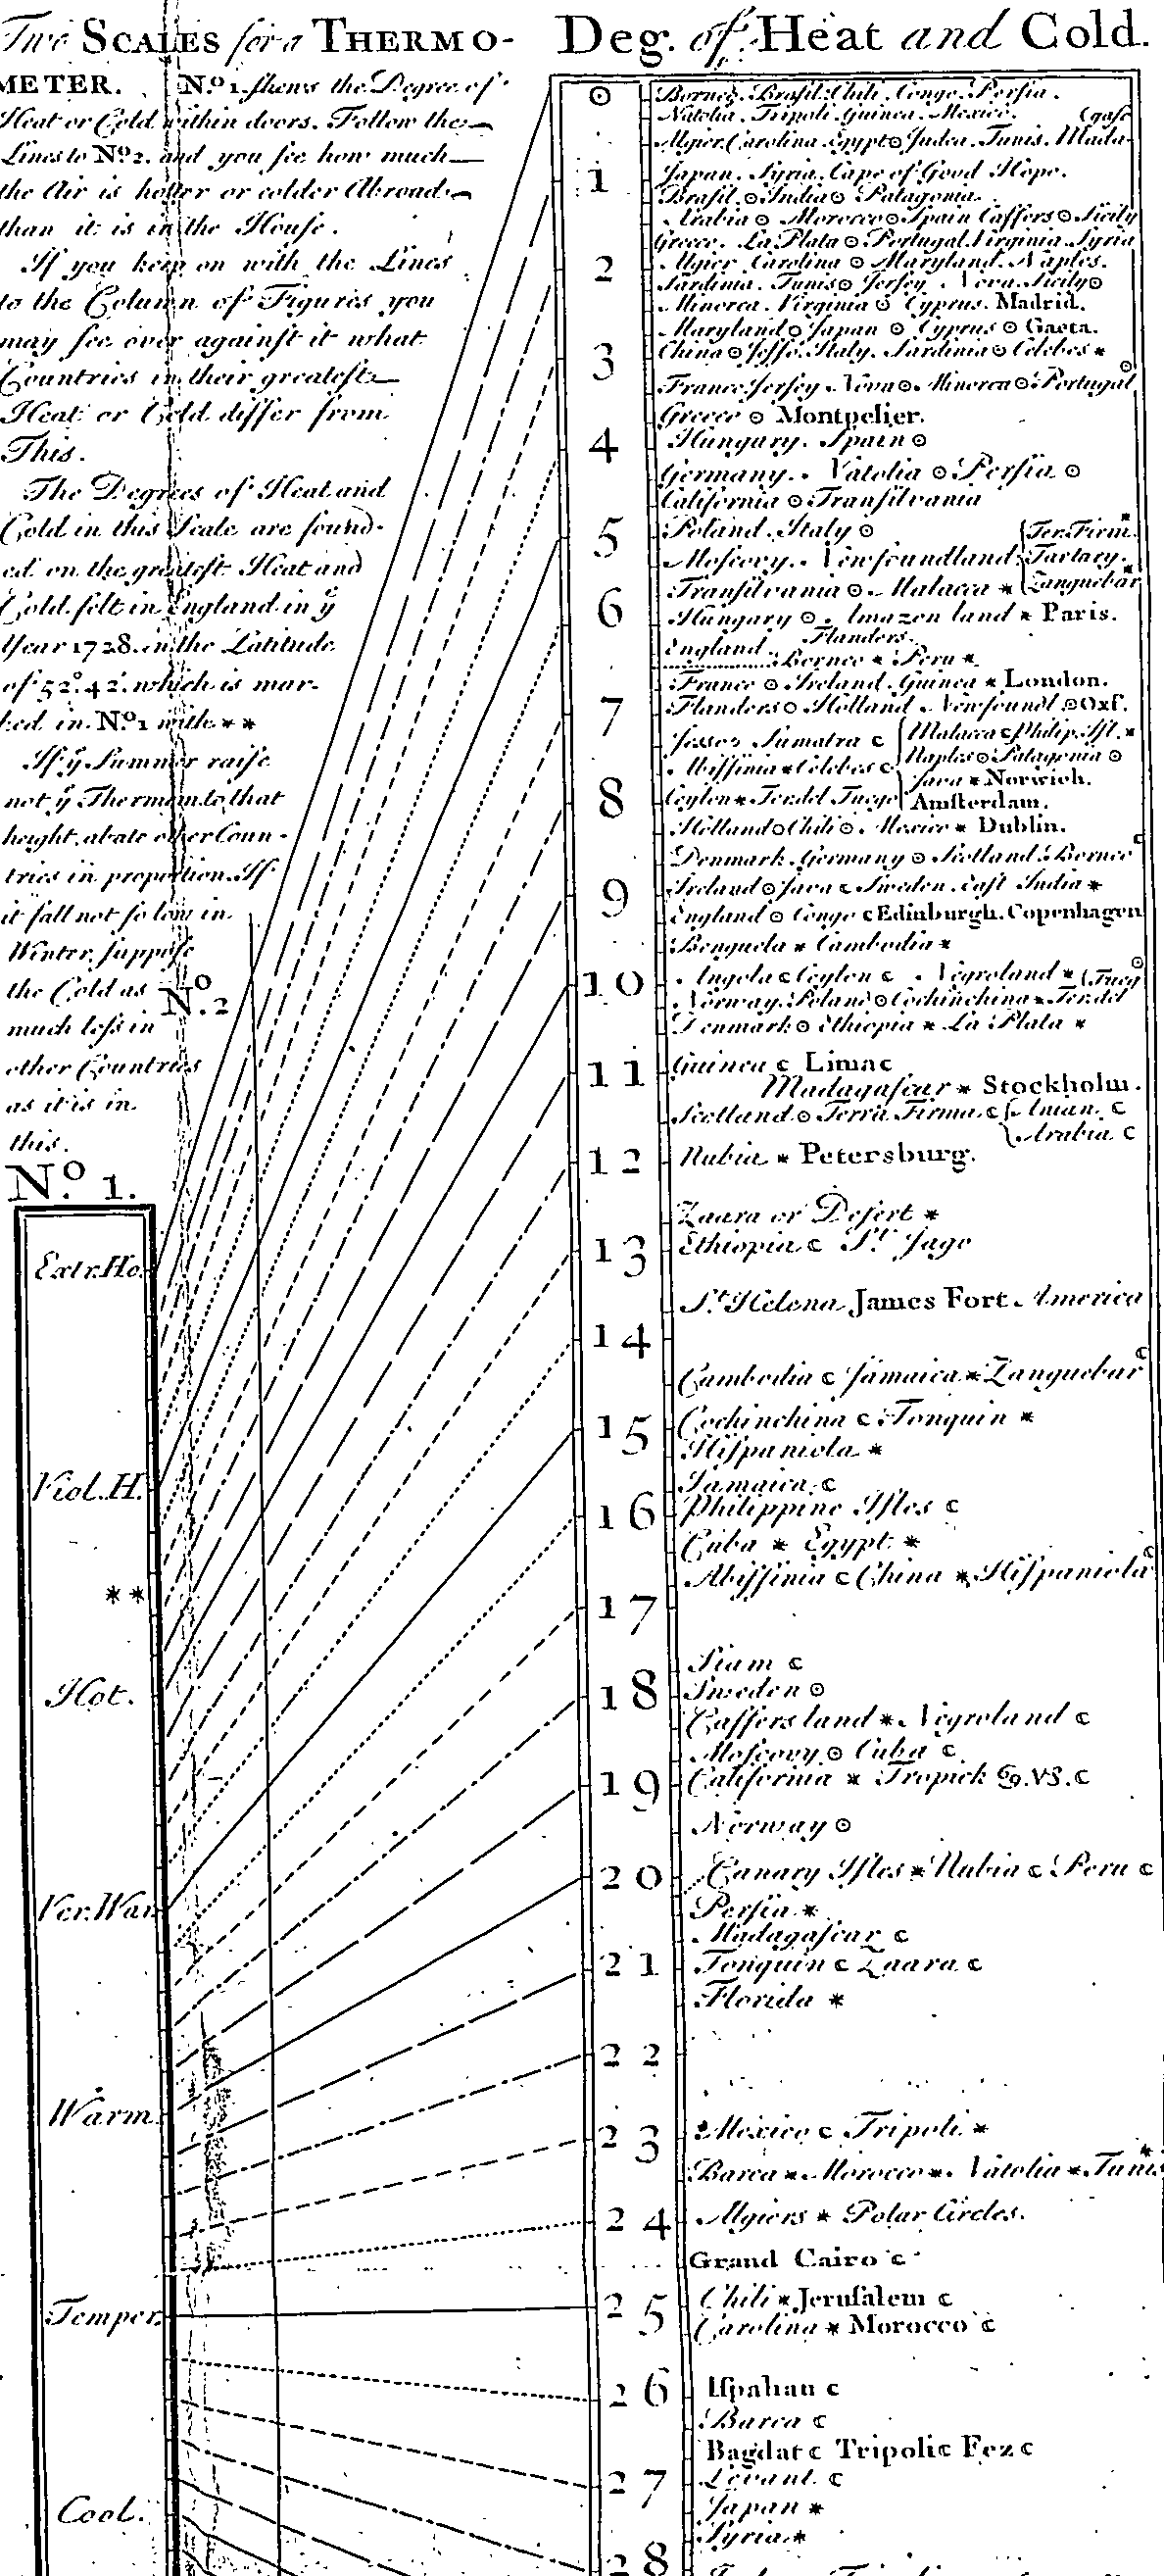 Two SCALES for a THERMO-
METER. No. 1. shews the Degree of
Heat or Cold within doors. Follow the
Lines to No. 2. and you see how much
the Air is hotter or colder Abroad
than it is in the House.
If you keep on with the Lines
to the Column of Figures you
may see over against it what
Countries in their greatest
Heat or Cold differ from
This.
The Degrees of Heat and
Cold in this Scale are found-
ed on the greatest Heat and
Cold felt in England in ye
Year 1728. in the Latitude
of 52°. 42'. which is mar-
ked in No. 1 with **
If ye Summer raise
not ye Thermom. to that
height, abate other Coun-
tries in proportion. If
it fall not so low in
Winter, suppose
the Cold as
much less in
other Countries
as it is in
this.
No. 2
No. 1.
Extr. Ho.
Viol. H.
**
Hot.
Ver. War.
Warm.
Temper.
Cool.
Deg. of Heat and Cold.
0 Borneo. Brasil. Chili. Congo. Persia.
Natolia. Tripoli. Guinea. Mexico. (gasc
Algier. Carolina. Egypt ⊙ Judea. Tunis. Mada-
1 Japan. Syria. Cape of Good Hope.
Brasil ⊙ India ⊙ Patagonia.
Arabia ⊙ Morocco ⊙ Spain Caffers ⊙ Sicily
Greece. La Plata ⊙ Portugal. Virginia. Syria
2 Algier Carolina ⊙ Maryland. Naples.
Sardinia. Tunis ⊙ Jersey Nova. Sicily ⊙
Minorca. Virginia ⊙ Cyprus. Madrid.
Maryland ⊙ Japan ⊙ Cyprus ⊙ Gaeta.
3 China ⊙ Jesso. Italy. Sardinia ⊙ Celebes *
France Jersey Nova ⊙ Minorca ⊙ Portugal ⊙
Greece ⊙ Montpelier.
4 Hungary. Spain ⊙
Germany. Natolia ⊙ Persia ⊙
California ⊙ Transilvania
5 Poland. Italy ⊙ {Ter. Firm. *
Moscovy. Newfoundland {Tartary.
Transilvania ⊙ Malacca * {Zanguebar *
6 Hungary ⊙ Amazon land * Paris.
England. Flanders.
Borneo * Peru *
France ⊙ Ireland. Guinea * London.
7 Flanders ⊙ Holland Newfoundl. ⊙ Oxf.
Jesso ⊙ Sumatra c {Malacca c Philip. Isl. *
Abissinia * Celebes c {Naples ⊙ Patagonia ⊙
8 Ceylon * Ter del Fuego {Java * Norwich.
Amsterdam.
Holland ⊙ Chili ⊙ Mexico * Dublin.
Denmark. Germany ⊙ Scotland. Borneo c
9 Ireland ⊙ Java c Sweden. East India *
England ⊙ Congo c Edinburgh. Copenhagen
Benguela * Cambodia *
10 Angola c Ceylon c Negroland * (Fueg ⊙
Norway. Poland ⊙ Cochinchina * Ter del
Denmark ⊙ Ethiopia * La Plata *
11 Guinea c Lima c
Madagascar * Stockholm.
Scotland ⊙ Terra Firma. c {Aman. c
{Arabia c
12 Nubia * Petersburg.
Zaara or Desert *
13 Ethiopia c St. Jago
St. Helena James Fort. America
14
Cambodia c Jamaica * Zanguebar c
15 Cochinchina c Tonquin *
Hispaniola *
Jamaica. c
16 Philippine Isles c
Cuba * Egypt *
Abissinia c China * Hispaniola c
17
Siam c
18 Sweden ⊙
Caffers land * Negroland c
Moscovy ⊙ Cuba c
19 California * Tropick ♋. ♑. c
Norway ⊙
20 Canary Isles * Nubia c Peru c
Persia *
Madagascar c
21 Tonquin c Zaara c
Florida *
22
23 Mexico c Tripoli *
Barca * Morocco * Natolia * Tunis *
24 Algiers * Polar Circles.
Grand Cairo c
25 Chili * Jerusalem c
Carolina * Morocco c
26 Ispahan c
Barca c
Bagdat c Tripoli c Fez c
27 Levant. c
Japan *
Syria *
28